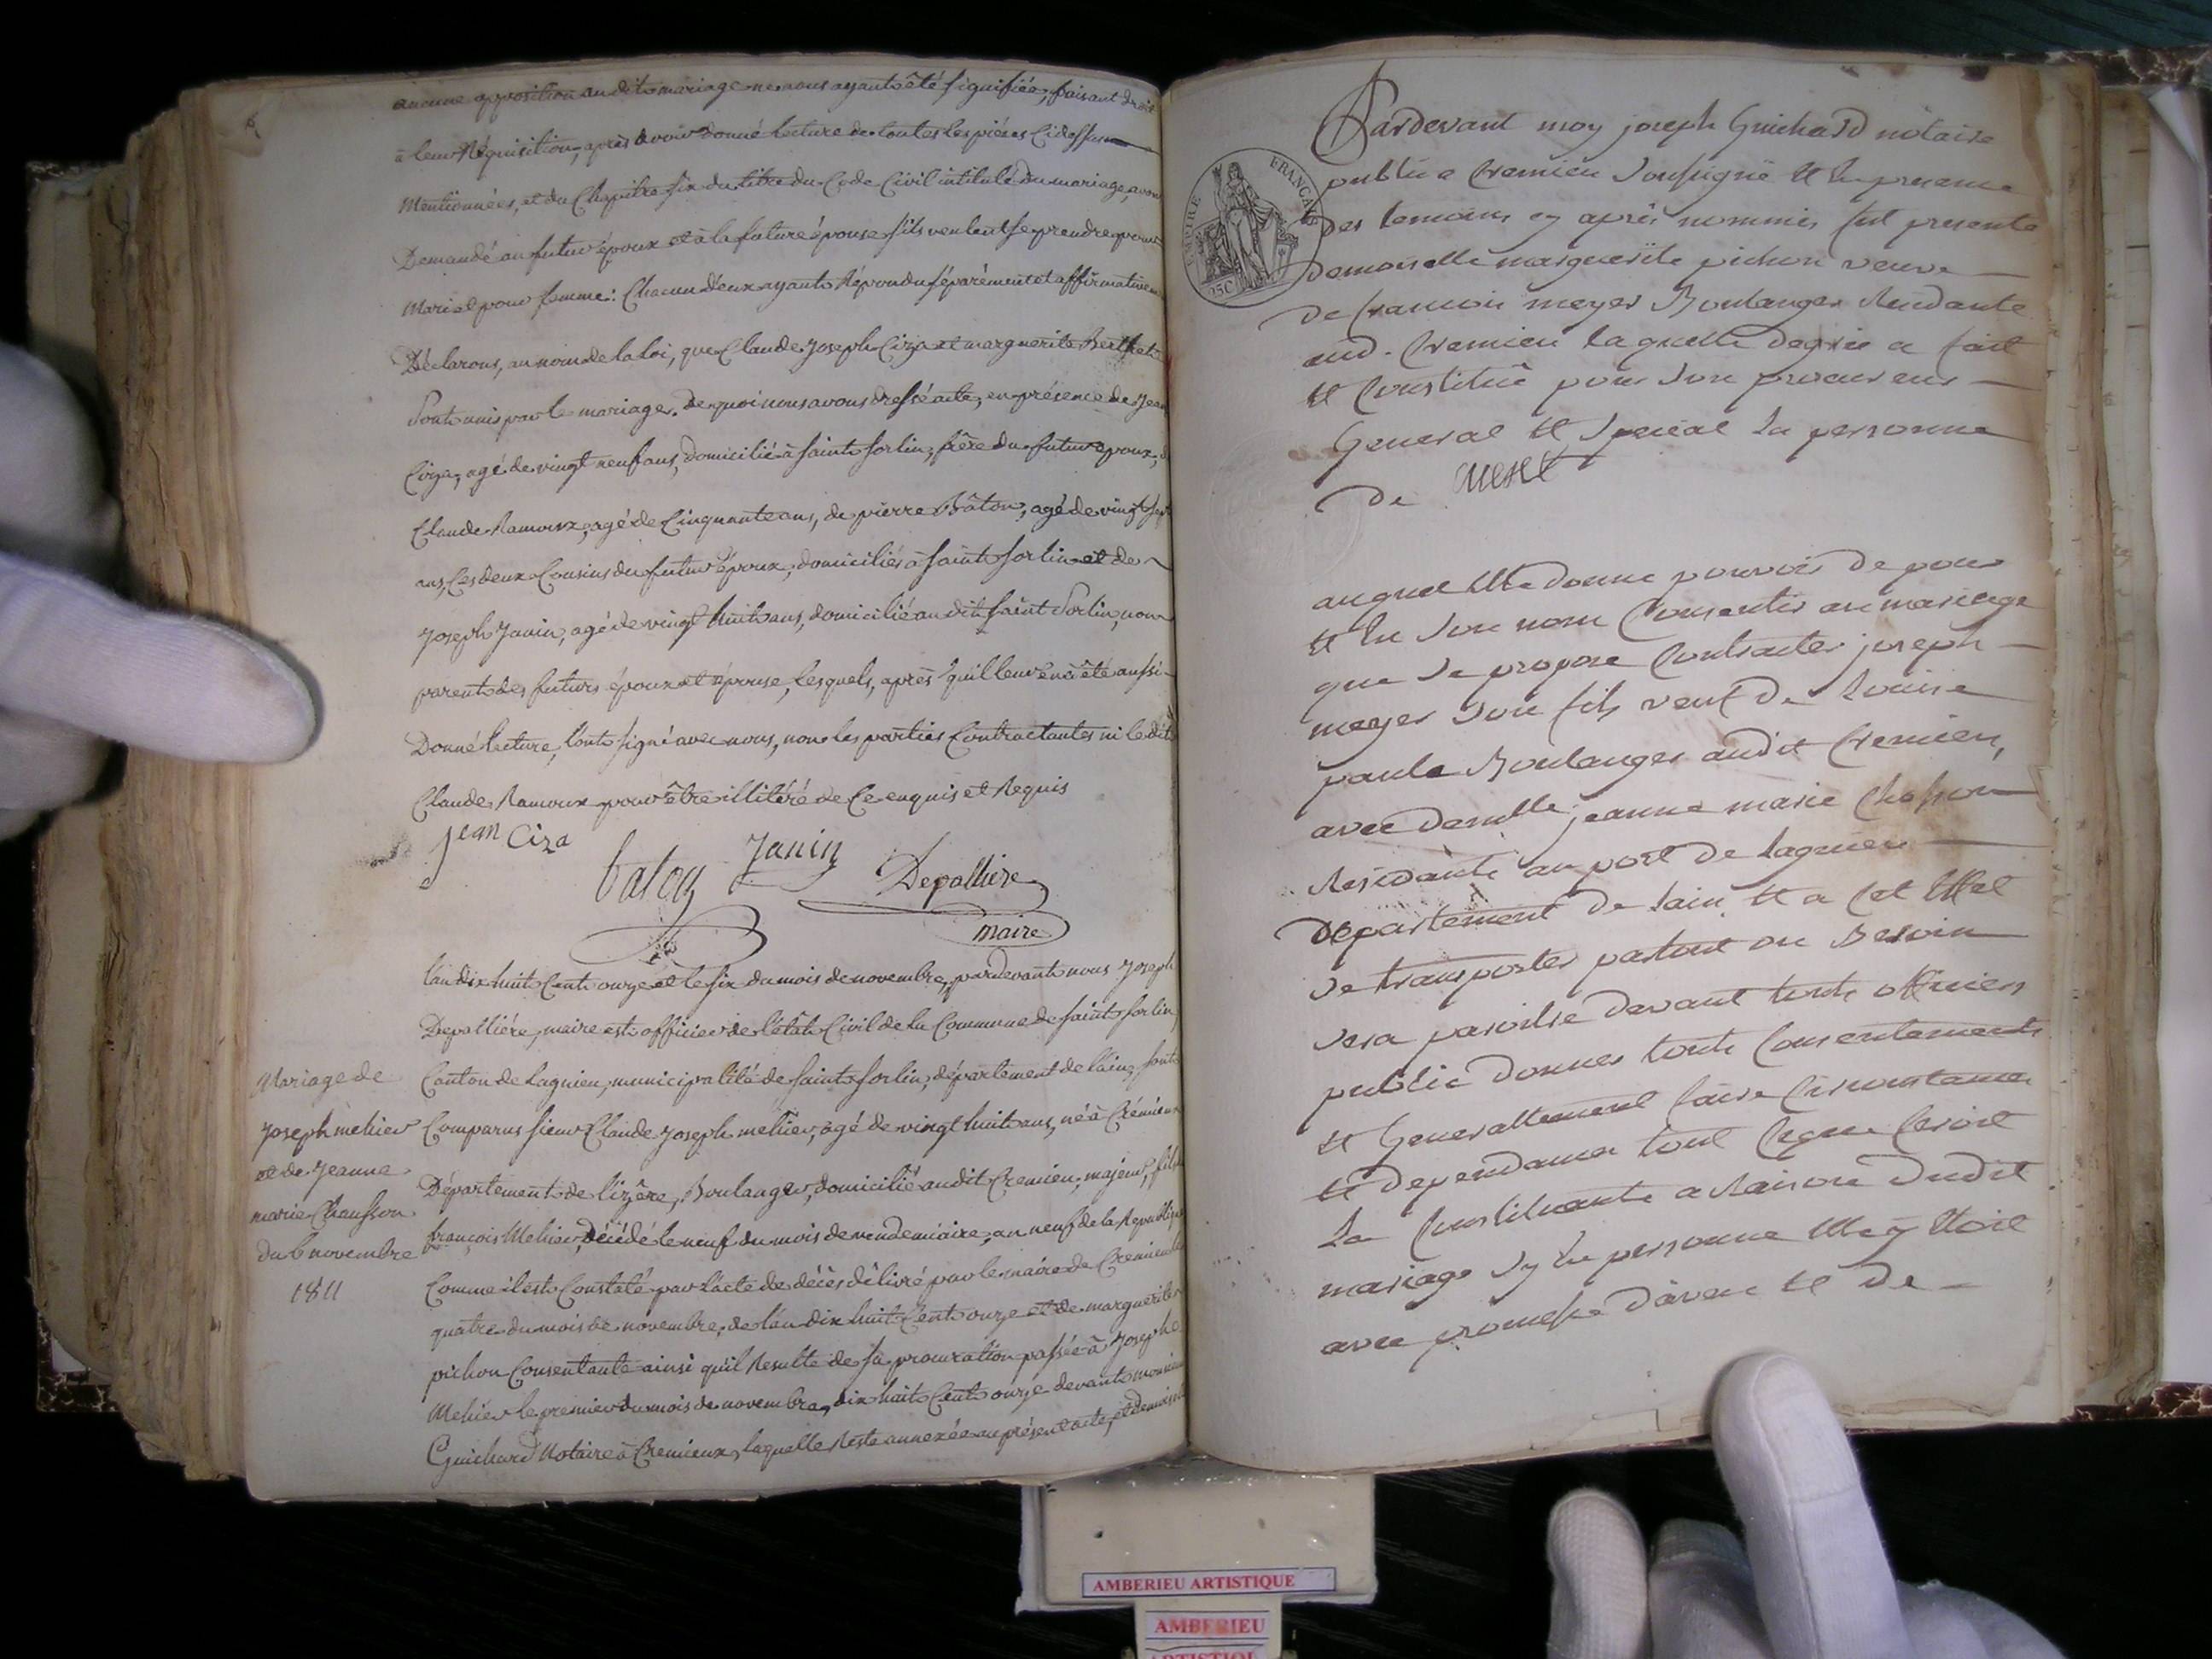 aucune opposition au dit mariage ne nous ayant été signifiée, faisant droit
à leur Réquisition, après avoir donné lecture de toutes les piéces Cidessus
Mentionnées, et du Chapitre six du titre du Code Civil intitulé Du mariage, avons
Demandé au futur époux et à la future épouse s'ils veulent se prendre pour
Mari et pour femme: Chacun d'eux ayant Répondu séparément et affirmativem
Déclarons, au nom de la loi, que Claude Joseph Ciza et marguerite Berthet
Sont unis par le mariage. De quoi nous avons dressé acte, en présence de Jean
Ciza, agé de vingt neuf ans, domicilié à saint sorlin, frère du futur époux, d
Claude Ramoux, agé de Cinquante ans, de pierre Bâton, agé de vingt sept
ans, Ces deux Cousins du futur époux, domiciliés à saint sorlin et de
Joseph Janin, agé de vingt huit ans, domicilié au dit saint Sorlin, non
parent des futurs époux et épouse, lesquels, après qu'il leur en a été aussi
Donné lecture, l'ont signé avec nous, non les parties Contractantes ni le dit
Claude Ramoux pour être illitéré de Ce enquis et Requis
jean Ciza
baton Janin Depalliere
maire
l'an dix huit Cent onze et le six du mois de novembre, pardevant nous Joseph
Depalliére, maire est officier de l'état Civil de la Commune de saint sorlin,
Canton de Lagnieu, municipalité de saint sorlin, département de l'ain, sont
Mariage de
Joseph mehier
et de Jeanne
marie Chausson
du 6 novembre
1811
Comparus sieur Claude Joseph mehier, agé de vingt huit ans, né à Crémieu
Département de l'izère, Boulanger, domicilié audit Cremieu, majeur, fils
françois Mehier, Décédé le neuf du mois de vendemiaire, an neuf de la Republique
Comme il est Constaté par l'acte de décès délivré par le maire de Cremieu le
quatre du mois de novembre, de l'an dix huit Cent onze et de marguerite
pichon Consentante ainsi qu'il Resulte de sa procuration passée à Joseph
Mehier le premier du mois de novembre, dix huit Cent onze devant monsieur
Guichard Notaire à Cremieux, laquelle Reste annexée au présent acte, et demoise
EMPIRE FRANÇAIS
25C
Pardevant moy joseph Guichard notaire
public a Cremieu soussigné et en presence
Des temoins cy après nommés fut presente
Demoiselle marguerite pichon veuve
de francois meyer Boulanger Residante
aud. Cremieu laquelle degrée a fait
et Constitué pour son procureur
General et special la personne
De
auquel elle donne pouvoir de pour
et en son nom Consentir au mariage
que se propose Contracter joseph
meyer son fils veuf de Louise
paule Boulanger audit Cremieu,
avec demelle jeanne marie Chosson
Residante au port de Lagnieu
Departement de lain et a Cet effet
se transporter partout ou Besoin
sera paroitre devant touts officiers
public donner touts Consentements
et Generallement faire Circonstances
et dependances tout Ceque feroit
La Constituante a Raison dudit
mariage sy en personne elle y etoit
avec promesse d'avoir et de
AMBERIEU ARTISTIQUE
AMBERIEU
ARTISTIQUE